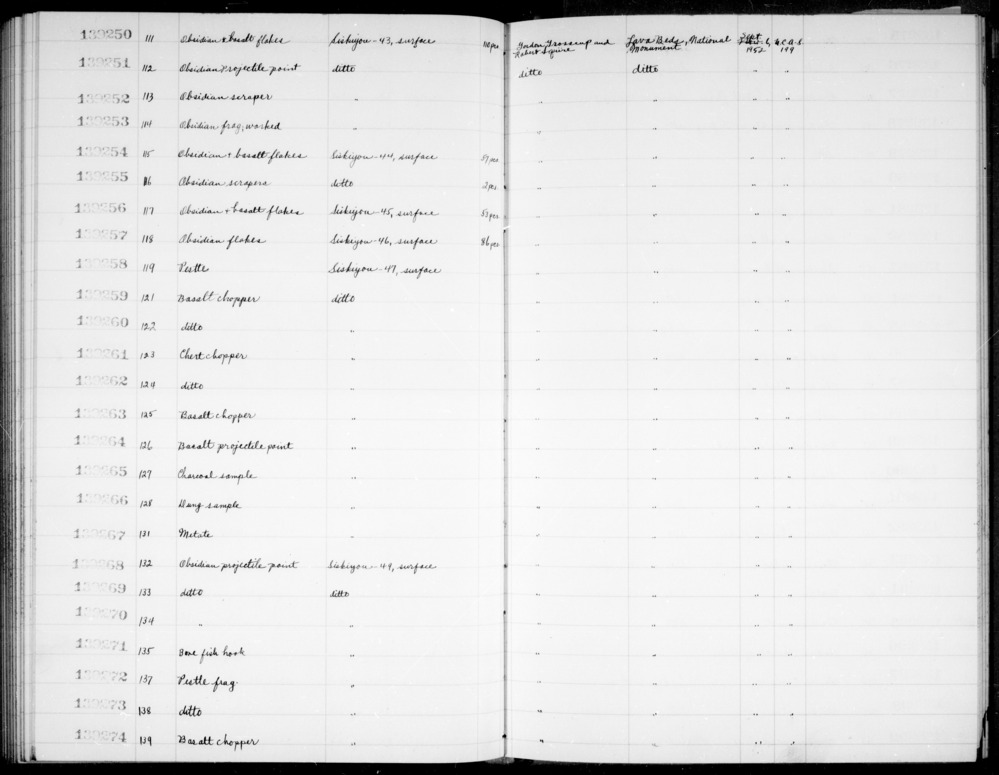 139250 111 Obsidian + basalt flakes Siskiyou-43, surface 110 pcs Gordon Grosscup and Robert Squire Lava Beds, National Monument Sept 6, 1952 U.C.A.S. 199
139251 112 Obsidian projectile point ditto ditto ditto " "
139252 113 Obsidian scraper " " " " "
139253 114 Obsidian frag, worked " " " " "
139254 115 Obsidian + basalt flakes Siskiyou-44, surface 59 pcs " " " "
139255 116 Obsidian scrapers ditto 2 pcs " " " "
139256 117 Obsidian + basalt flakes Siskiyou-45, surface 53 pcs " " " "
139257 118 Obsidian flakes Siskiyou-46, surface 86 pcs " " " "
139258 119 Pestle Siskiyou-47, surface " " " "
139259 121 Basalt chopper ditto " " " "
139260 122 ditto " " " " "
139261 123 Chert chopper " " " " "
139262 124 ditto " " " " "
139263 125 Basalt chopper " " " " "
139264 126 Basalt projectile point " " " " "
139265 127 Charcoal sample " " " " "
139266 128 Dung sample " " " " "
139267 131 Metate " " " " "
139268 132 Obsidian projectile point Siskiyou-49, surface " " " "
139269 133 ditto ditto " " " "
139270 134 " " " " " "
139271 135 Bone fish hook " " " " "
139272 137 Pestle frag. " " " " "
139273 138 ditto " " " " "
139274 139 Basalt chopper " " " " "